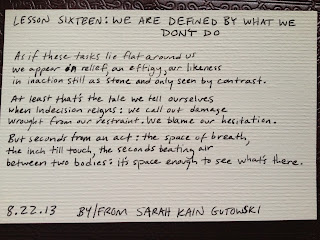 LESSON SIXTEEN: WE ARE DEFINED BY WHAT WE
DON'T DO
As if these tasks lie flat around us
we appear in relief, an effigy, our likeness
in inaction still as stone and only seen by contrast.
At least that's the tale we tell ourselves
when indecision reigns: we call out damage
wrought from our restraint. We blame our hesitation.
But seconds from an act: the space of breath,
the inch till touch, the seconds beating air
between two bodies: it's space enough to see what's there.
8.22.13 BY/FROM SARAH KAIN GUTOWSKI